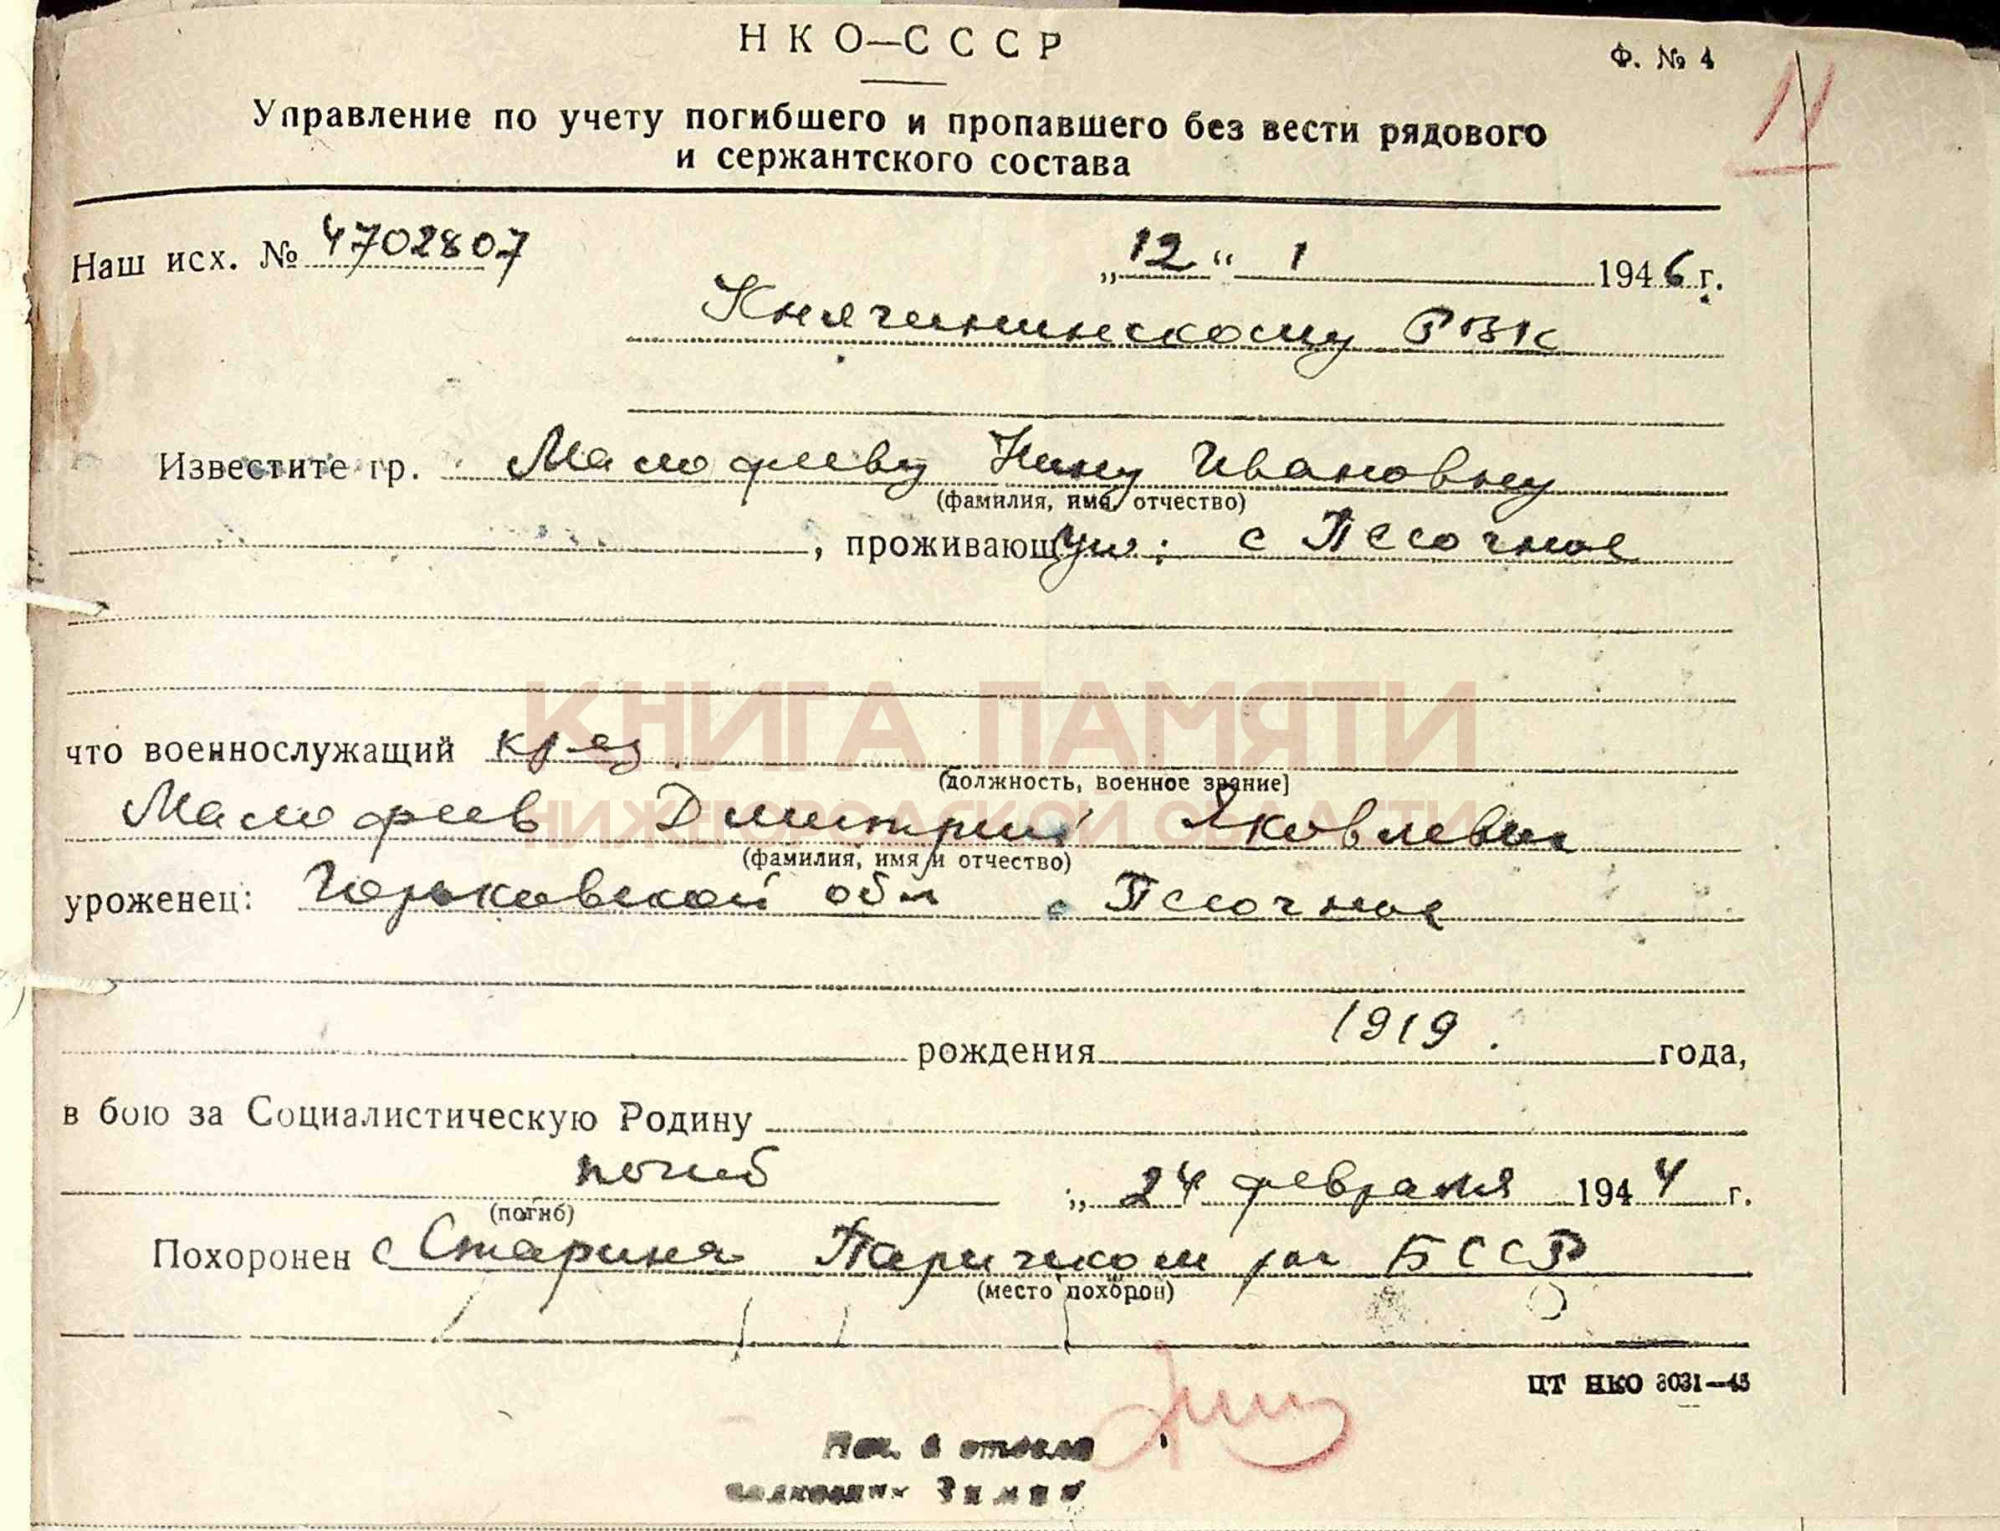 НКО—СССР
Ф. № 4
11
Управление по учету погибшего и пропавшего без вести рядового
и сержантского состава
Наш исх. № 4702807
„12“ 1 1946 г.
Княгининскому РВК
Известите гр. Малофееву Нину Ивановну
(фамилия, имя, отчество)
, проживающую: с Песочное
КНИГА ПАМЯТИ
что военнослужащий кр-ец
(должность, военное звание)
НИЖЕГОРОДСКОЙ ОБЛАСТИ
Малофеев Дмитрий Яковлевич
(фамилия, имя и отчество)
уроженец: Горьковской обл с Песочное
рождения 1919. года,
в бою за Социалистическую Родину
погиб „24 февраля 1944 г.
(погиб)
Похоронен с Стариня Паричском р-не БССР
(место похорон)
ЦТ НКО 3031—45
Нач. 6 отдела
полковник